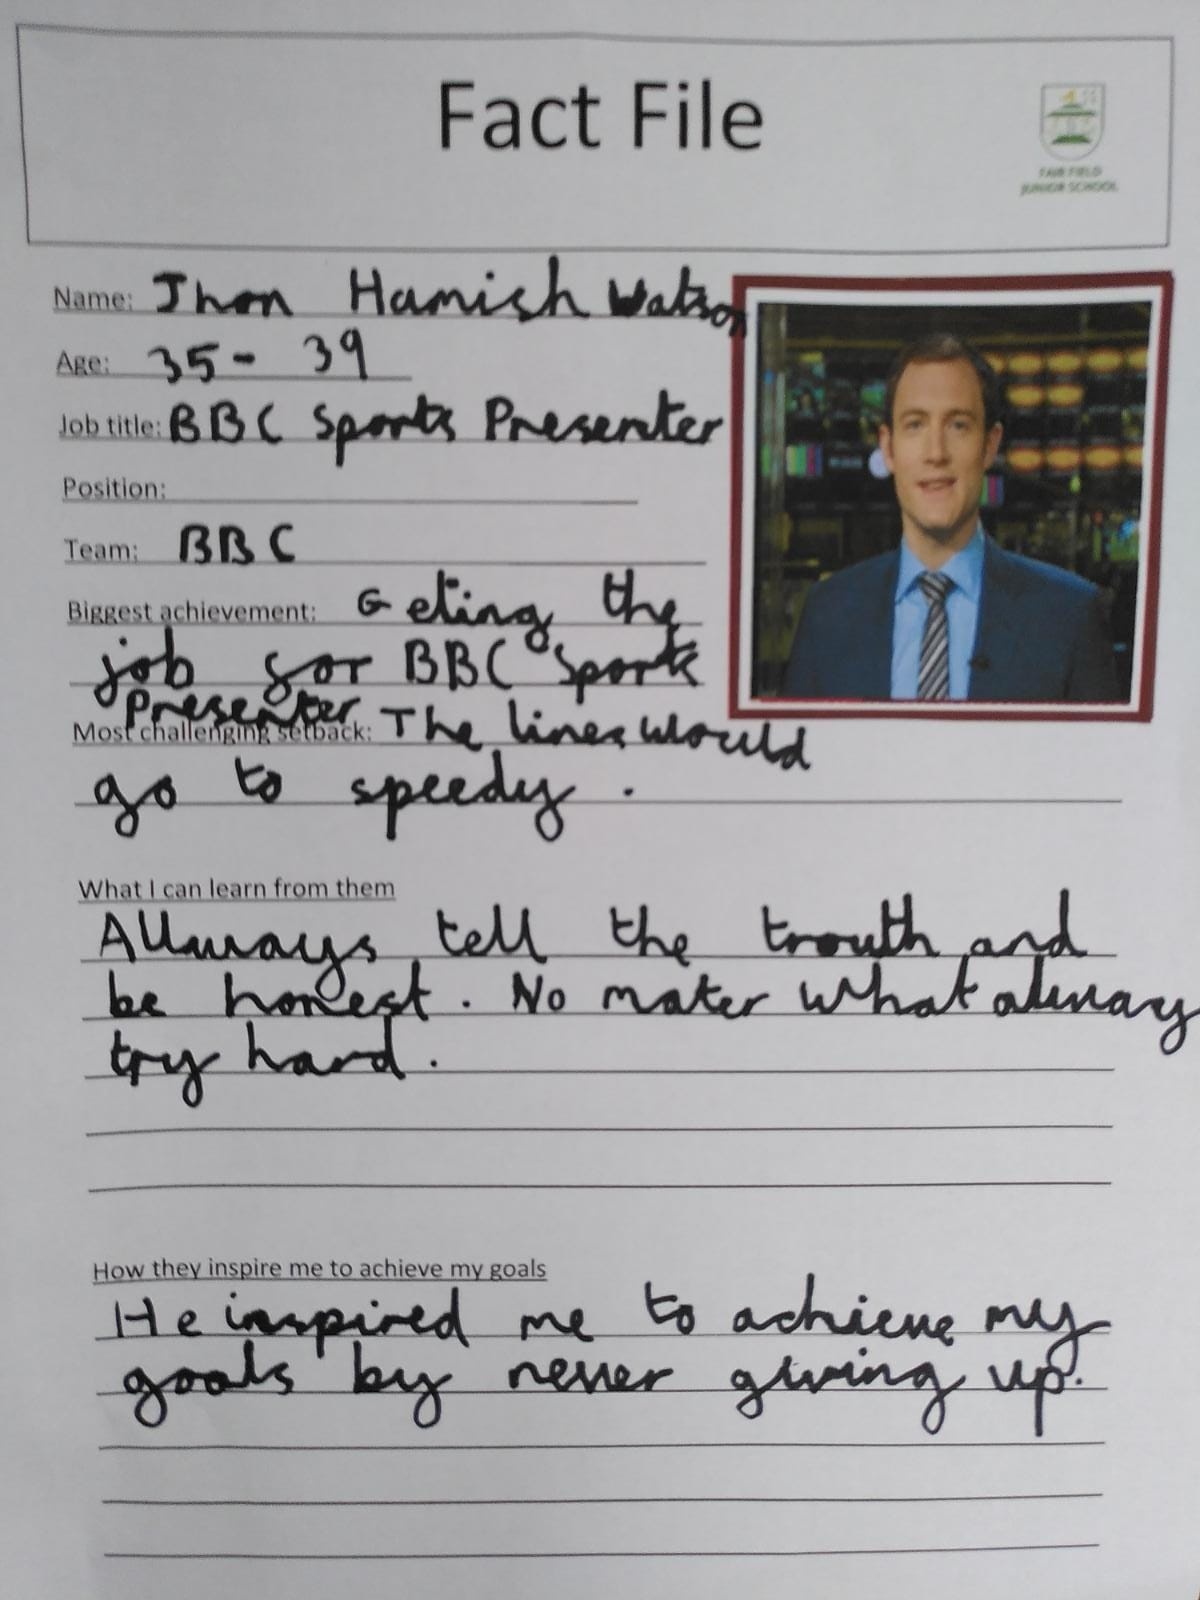 Fact File
FAIR FIELD
JUNIOR SCHOOL
Name: Jhon Hamish Watson
Age: 35 - 39
Job title: BBC Sports Presenter
Position:
Team: BBC
Biggest achievement: Geting the
job for BBC Sports
Presenter
Most challenging setback: The lines would
go to speedy .
What I can learn from them
Allways tell the trouth and
be honest. No mater what alway
try hard.
How they inspire me to achieve my goals
He inspired me to achieve my
goals by never giving up.